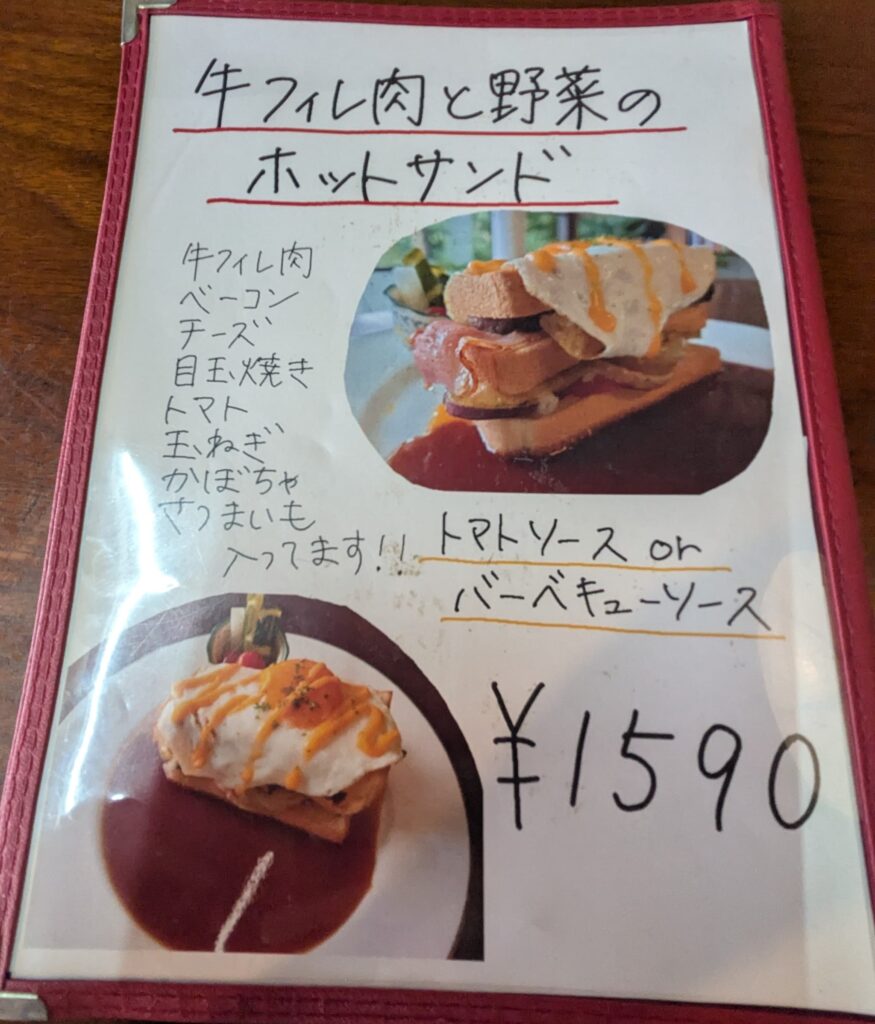 牛フィレ肉と野菜の
ホットサンド
牛フィレ肉
ベーコン
チーズ
目玉焼き
トマト
玉ねぎ
かぼちゃ
さつまいも
入ってます!!
トマトソース or
バーベキューソース
¥1590